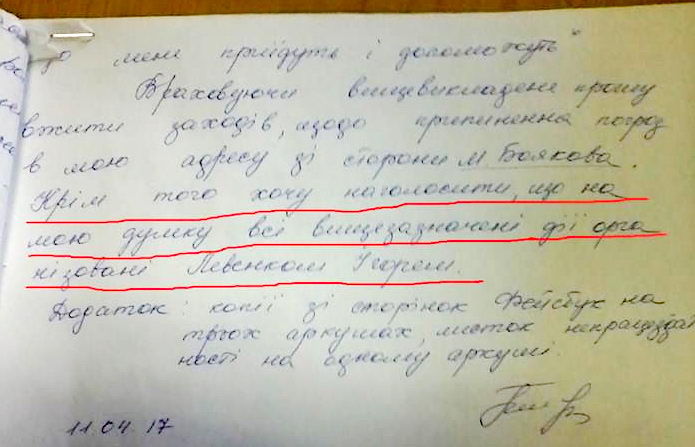 до мене прийдуть і допоможуть"
Враховуючи вищевикладене прошу
вжити заходів, щодо припинення погроз
в мою адресу зі сторони М. Боякова.
Крім того хочу наголосити, що на
мою думку всі вищезазначені дії орга
нізовані Левенком Ігорем.
Додаток: копії зі сторінок Фейсбук на
трьох аркушах, листок непрацездат
ності на одному аркуші.
11.04.17